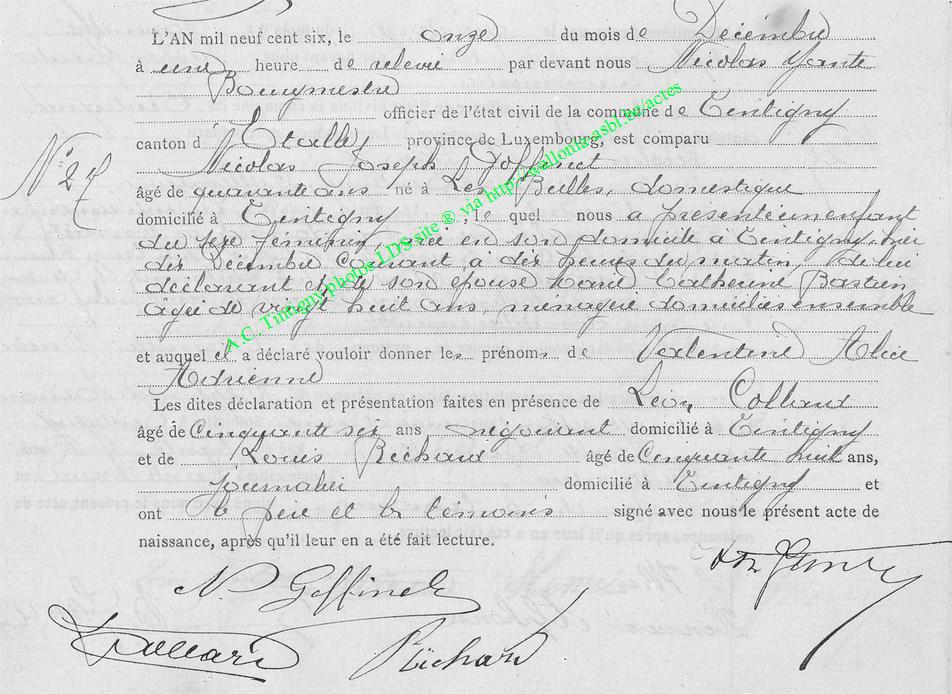 L'AN mil neuf cent six, le onze du mois de Décembre
à une heure de relevée par devant nous Nicolas
Bourgmestre
officier de l'état civil de la commune de Tintigny
canton d'Etalle, province de Luxembourg, est comparu
Nicolas Joseph Goffinet
N° 27
âgé de quarante ans né à Les Bulles, domestique
domicilié à Tintigny, le quel nous a présenté un enfant
du sexe féminin, née en son domicile à Tintigny, hier
dix Décembre courant, à dix heures du matin, de lui
déclarant et de son épouse Marie Catherine Bastien
âgée de vingt huit ans, ménagère domiciliés ensemble
et auquel il a déclaré vouloir donner les prénoms de Valentine Alice
Adrienne
Les dites déclaration et présentation faites en présence de Léon Collaux
âgé de Cinquante six ans négociant domicilié à Tintigny
et de Louis Réchaux âgé de Cinquante huit ans,
Journalier domicilié à Tintigny et
ont le père et les témoins signé avec nous le présent acte de
naissance, après qu'il leur en a été fait lecture.
N. Goffinet
A.C. Tintigny photos LDS site ® via http://wallonia-asbl.eu/actes